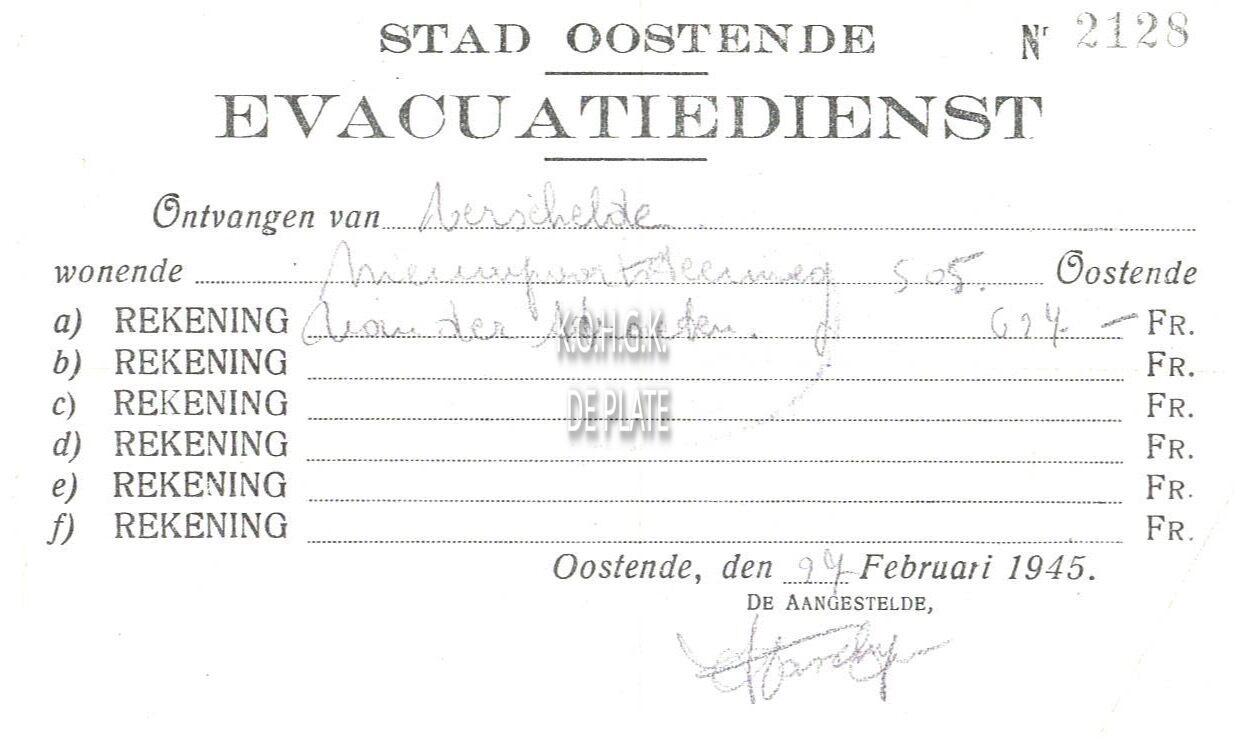 STAD OOSTENDE Nr 2128
EVACUATIEDIENST
Ontvangen van Verschelde
wonende Nieuwpoortsteenweg 505. Oostende
a) REKENING Van der FR.
K.O.H.G.K.
b) REKENING FR.
c) REKENING FR.
DE PLATE
d) REKENING FR.
e) REKENING FR.
f) REKENING FR.
Oostende, den 27 Februari 1945.
DE AANGESTELDE,